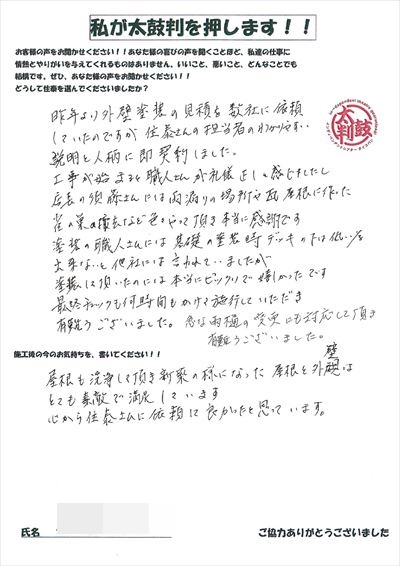 私が太鼓判を押します！！
お客様の声をお聞かせください！！あなた様の喜びの声を聞くことほど、私達の仕事に
情熱とやりがいを与えてくれるものはありません。いいこと、悪いこと、どんなことでも
結構です。ぜひ、あなた様の声をお聞かせください！！
どうして住泰を選んでくださいましたか？
太鼓判
昨年より外壁塗装の見積を数社に依頼
していたのですが住泰さんの担当者のわかりやすい
説明と人柄に即契約しました。
工事が始まると職人さんが礼儀正しく感じましたし
店長の須藤さんには雨漏りの場所や瓦屋根に作った
雀の巣の撤去など色々やって頂き本当に感謝です
塗装の職人さんには基礎の塗装時デッキの下は低い為
出来ないと他社には言われていましたが
塗装して頂いたのには本当にビックリで嬉しかったです
最終チェックも何時間もかけて施行していただき
有難うございました。急な雨樋の変更にも対応して頂き
有難うございました。
施工後の今のお気持ちを、書いてください！！
屋根も洗浄して頂き新築の様になった屋根と外壁は
とても素敵で満足しています
心から住泰さんに依頼して良かったと思っています。
氏名
ご協力ありがとうございました